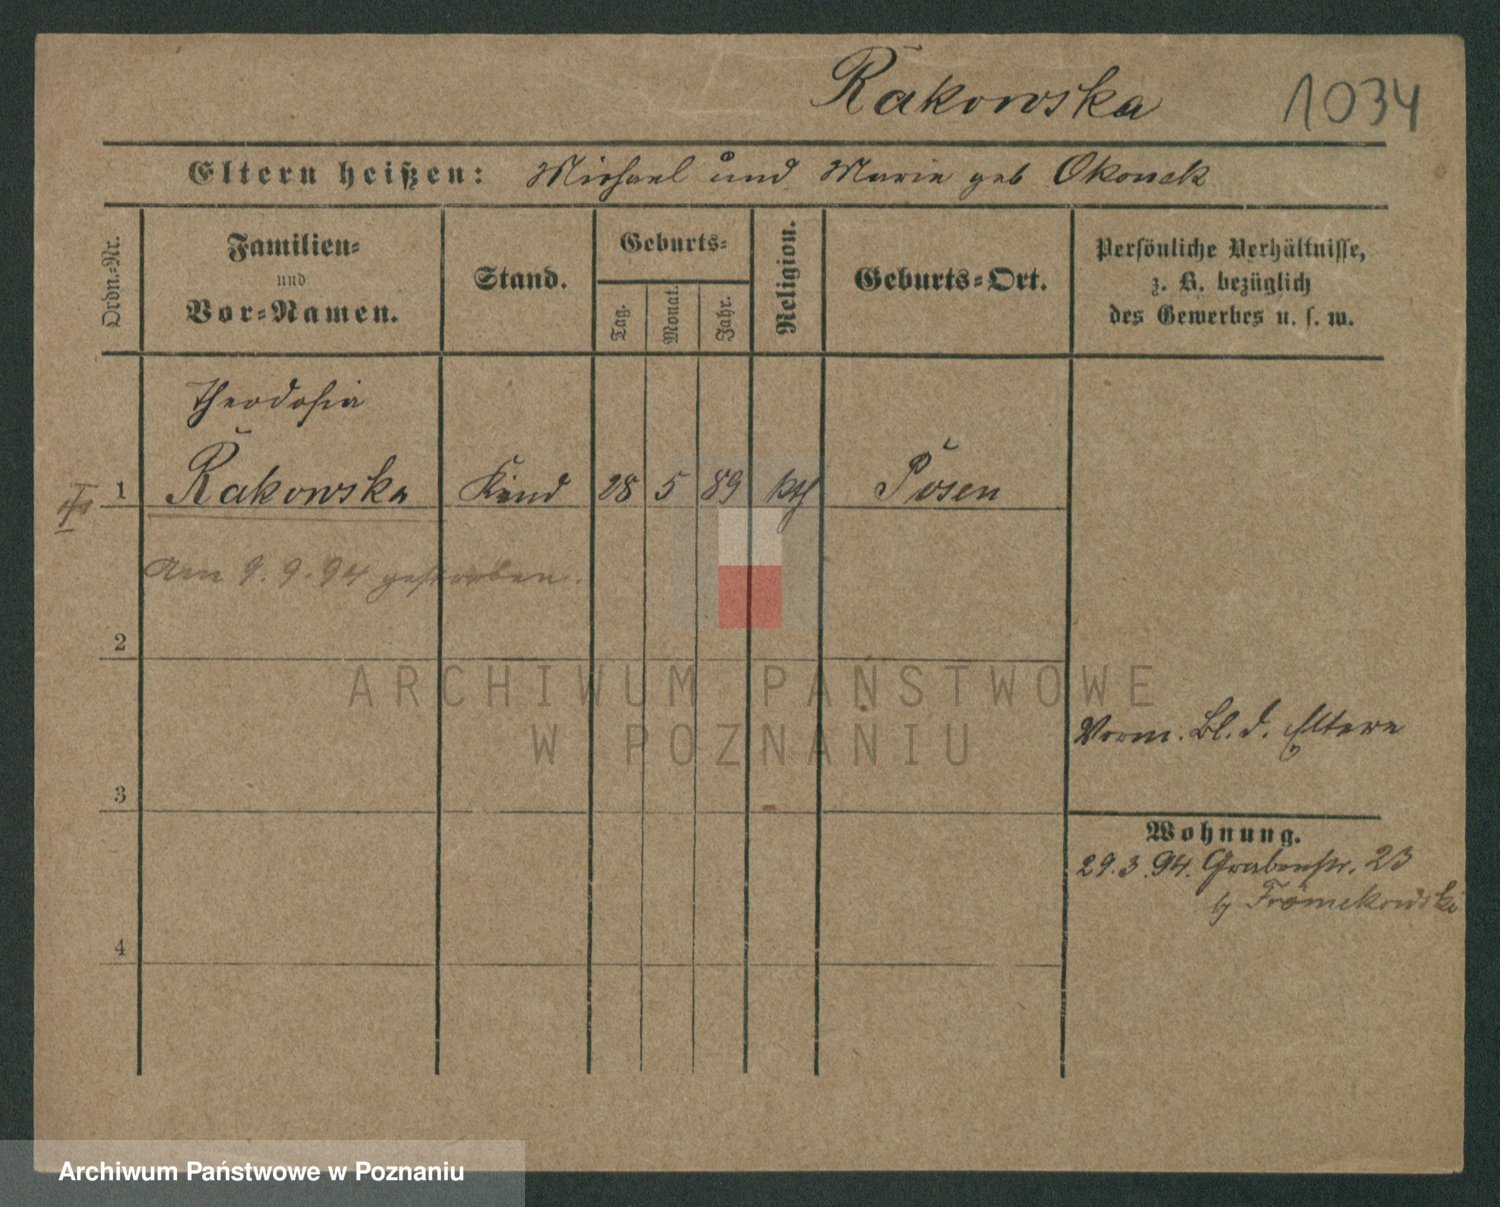 Rakowska 1034
Eltern heißen: Michael und Marie geb Okonek
Ordn.=Nr.
Familien=
und
Vor=Namen.
Stand.
Geburts=
Tag.
Monat.
Jahr.
Religion.
Geburts=Ort.
Persönliche Verhältnisse,
z. B. bezüglich
des Gewerbes u. s. w.
Theodosia
1 Rakowska Kind 28 5 89 kth Posen
Am 9. 9. 94 gestorben.
2
ARCHIWUM PAŃSTWOWE
W POZNANIU
Vorm. Bl. d. Eltern
3
Wohnung.
29. 3. 94. Grabenstr. 23
by Frömekowski
4
Archiwum Państwowe w Poznaniu